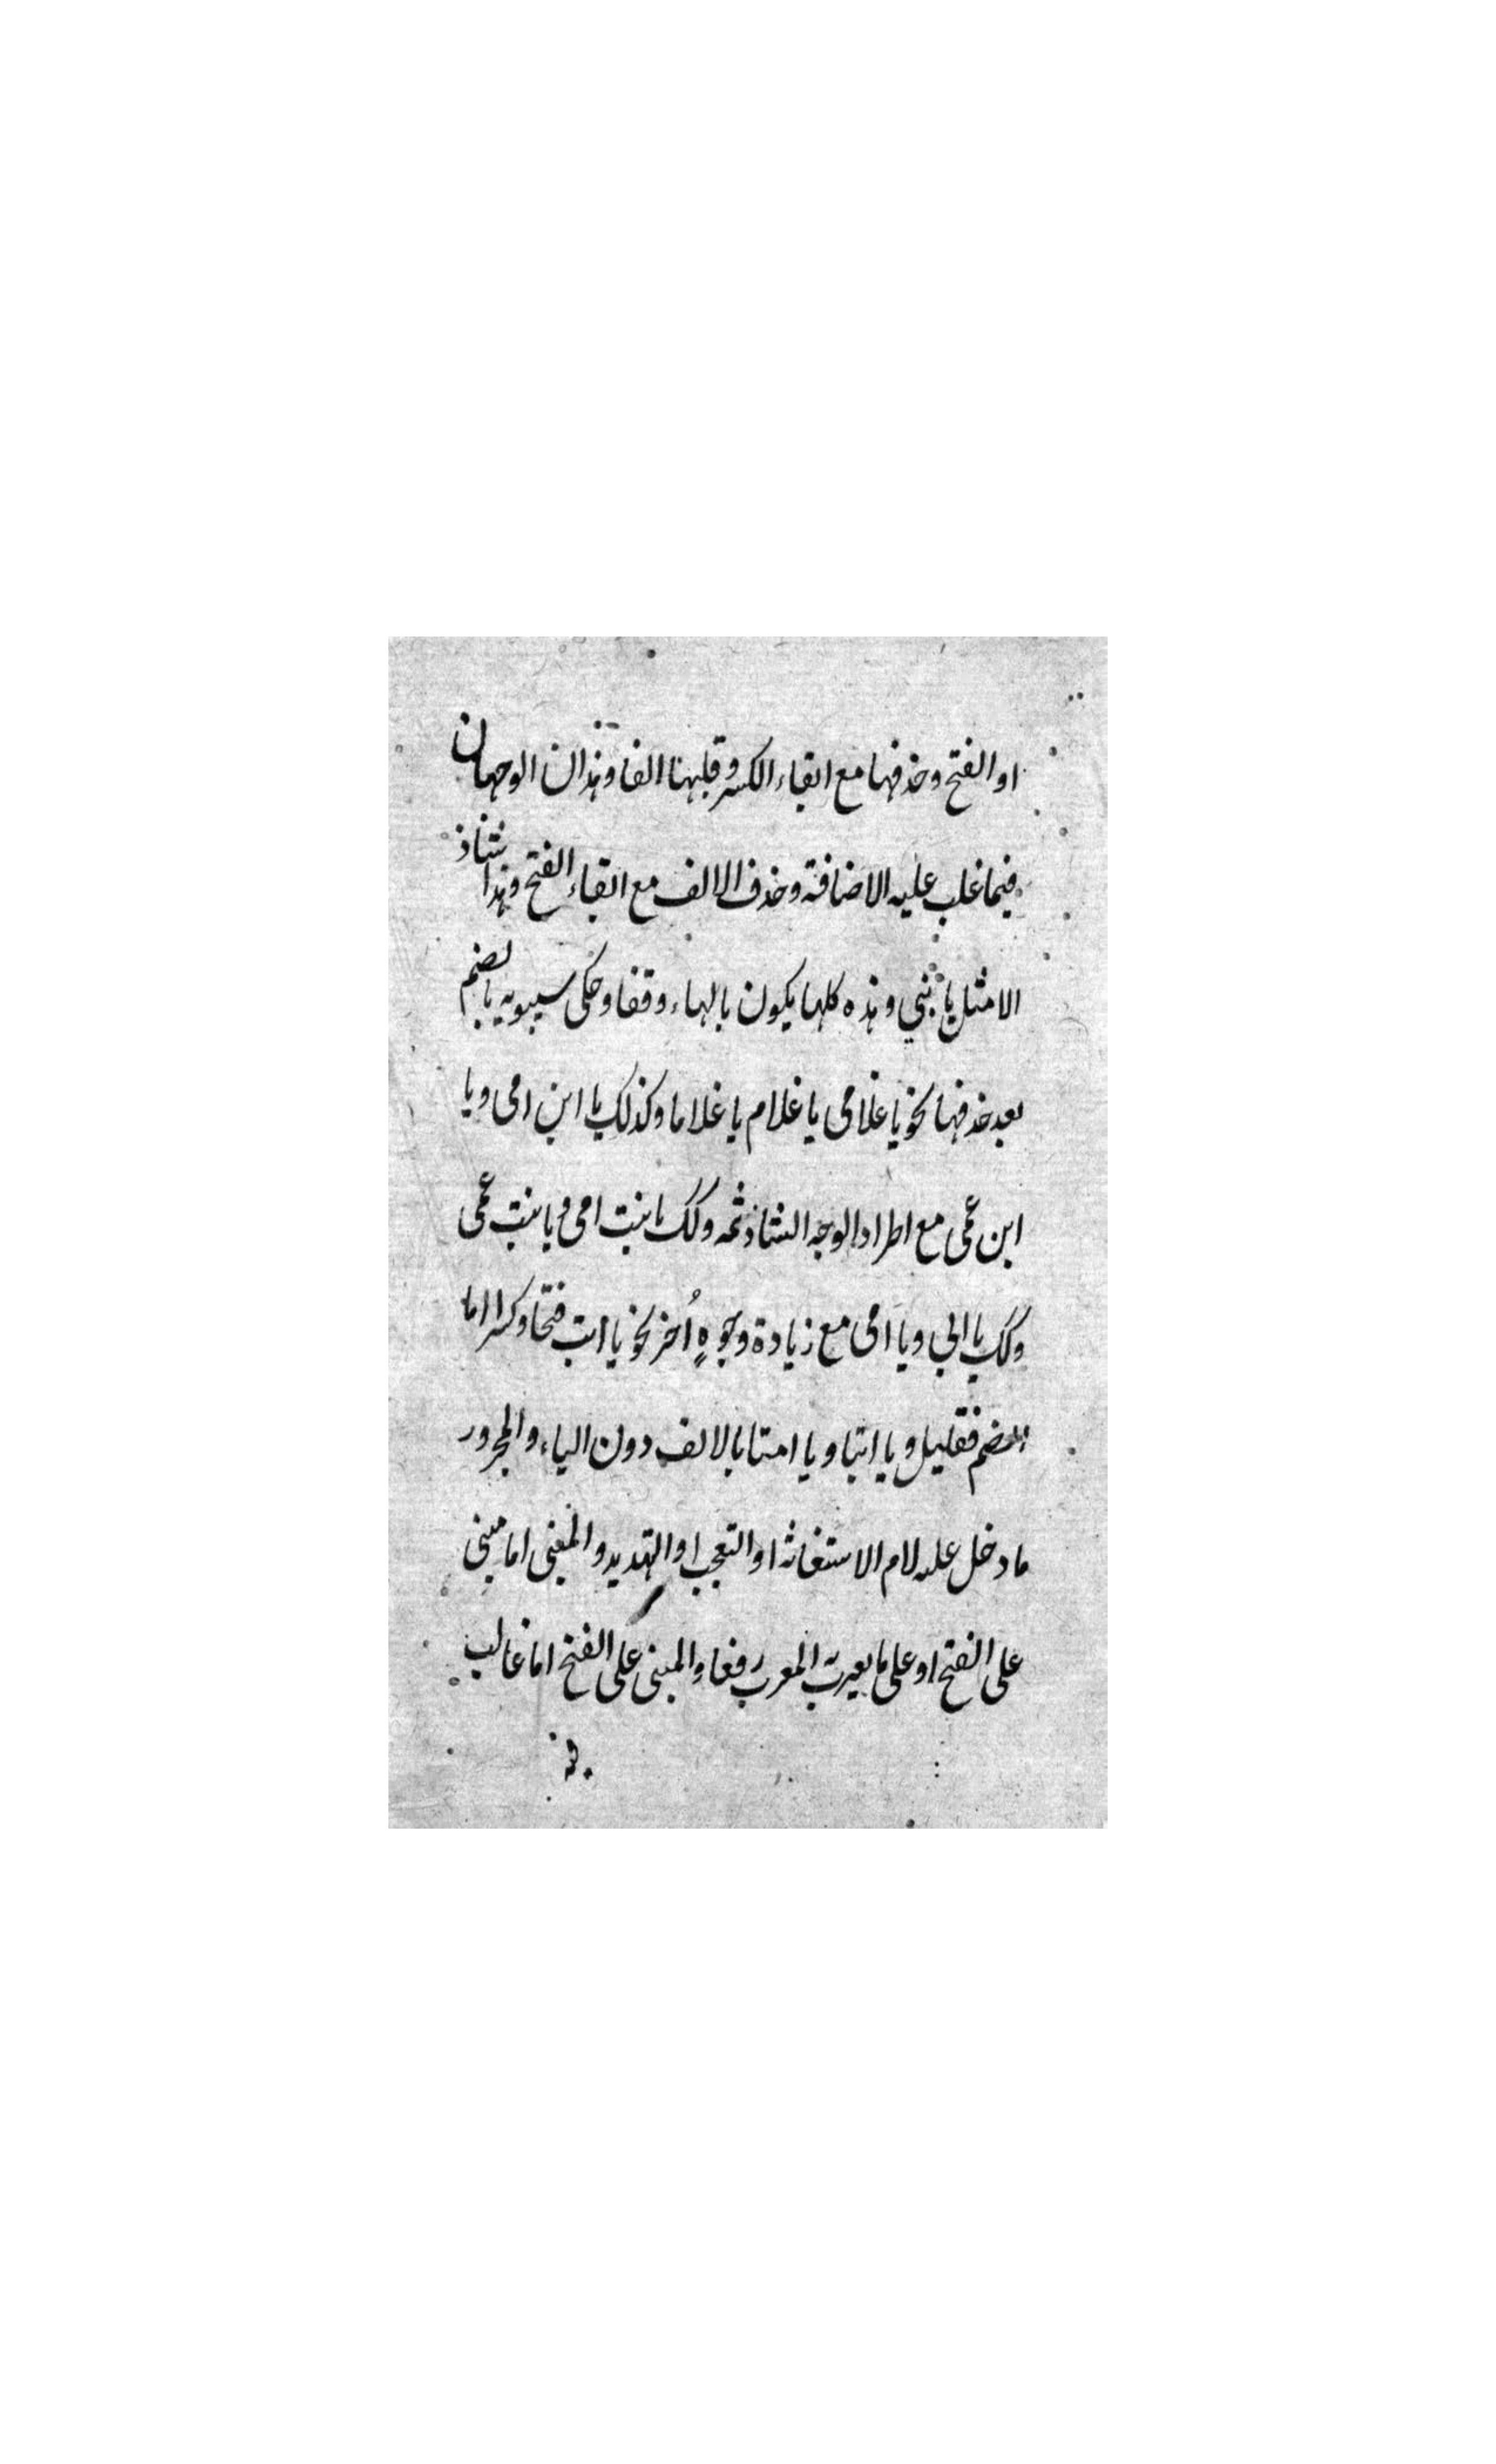 او الفتح وحذفها مع ابقاء الكسر وقلبها الفا وهذان الوجهان
فيما غلب عليه الاضافة وحذف الالف مع ابقاء الفتح وهذا شاذ
الا مثل يا بني وهذه كلها يكون بالهاء وقفا وحكى سيبويه بالضم
بعد حذفها نحو يا غلامى يا غلام يا غلاما وكذلك يا ابن امى ويا
ابن عمى مع اطراد الوجه الشاذ ثمه وكك يا بنت امى و يا بنت عمى
وكك يا ابي ويا امى مع زيادة وجوهٍ اُخر نحو يا ابت فتحا وكسرا اما
الضم فقليل و يا ابتا و يا امتا بالالف دون الياء والمجرور
ما دخل عليه لام الاستغاثة او التعجب او التهديد و المبنى اما مبنى
على الفتح او على ما يعرب به المعرب رفعا والمبنى على الفتح اما غالب